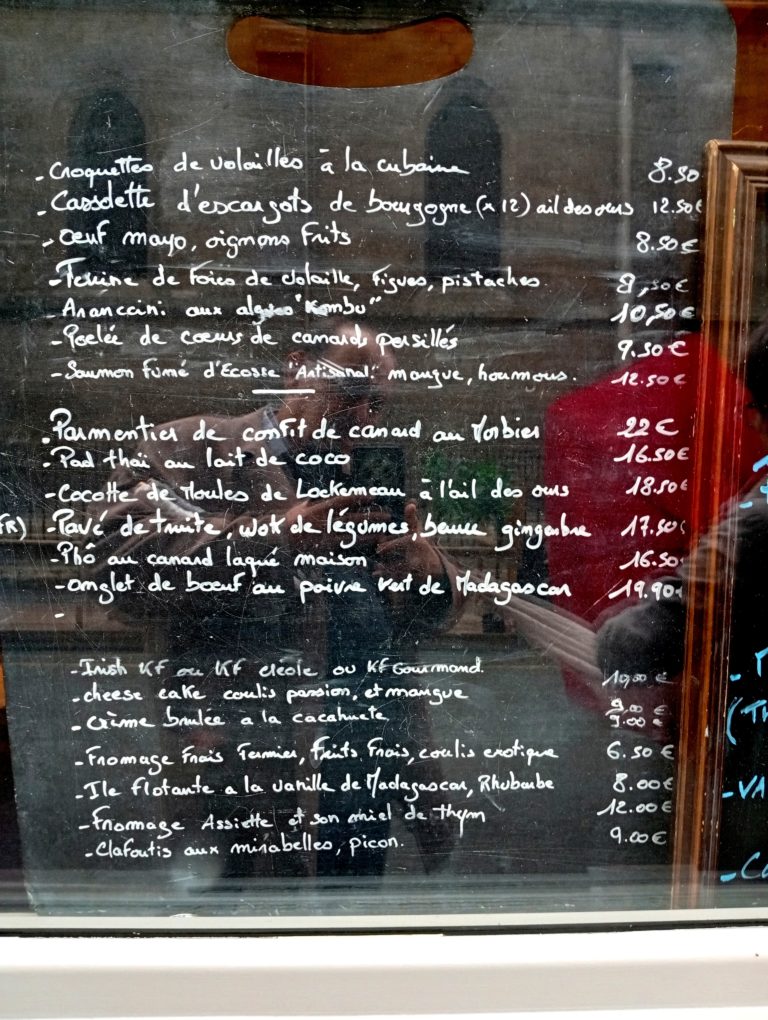 - Croquettes de volailles à la cubaine 8.50
- Cassolette d'escargots de bourgogne (x 12) ail des ours 12.50€
- Œuf mayo, oignons frits 8.50€
- Terrine de foies de volaille, figues, pistaches 8,50€
- Aranccini aux algues "Kombu" 10,50€
- Poelée de cœurs de canards persillés 9.50€
- Saumon fumé d'Ecosse "Artisanal" mangue, houmous. 12.50€
- Parmentier de confit de canard au Morbier 22€
- Pad thaï au lait de coco 16.50€
- Cocotte de Moules de Lockemeau à l'ail des ours 18.50€
FR) - Pavé de truite, wok de légumes, beurre gingembre 17.50€
- Phô au canard laqué maison 16.50
- onglet de bœuf au poivre vert de Madagascar 19.90€
-
- Irish KF ou KF créole ou KF Gourmand. 10,00 €
- cheese cake coulis passion, et mangue 9.00 €
- crème brulée a la cacahuete 9.00 €
- Fromage Frais Fermier, fruits frais, coulis exotique 6.50 €
- Ile flotante a la vanille de Madagascar, Rhubarbe 8.00€
- Fromage Assiette et son miel de thym 12.00€
- Clafoutis aux mirabelles, picon. 9.00€
(TH
- VA